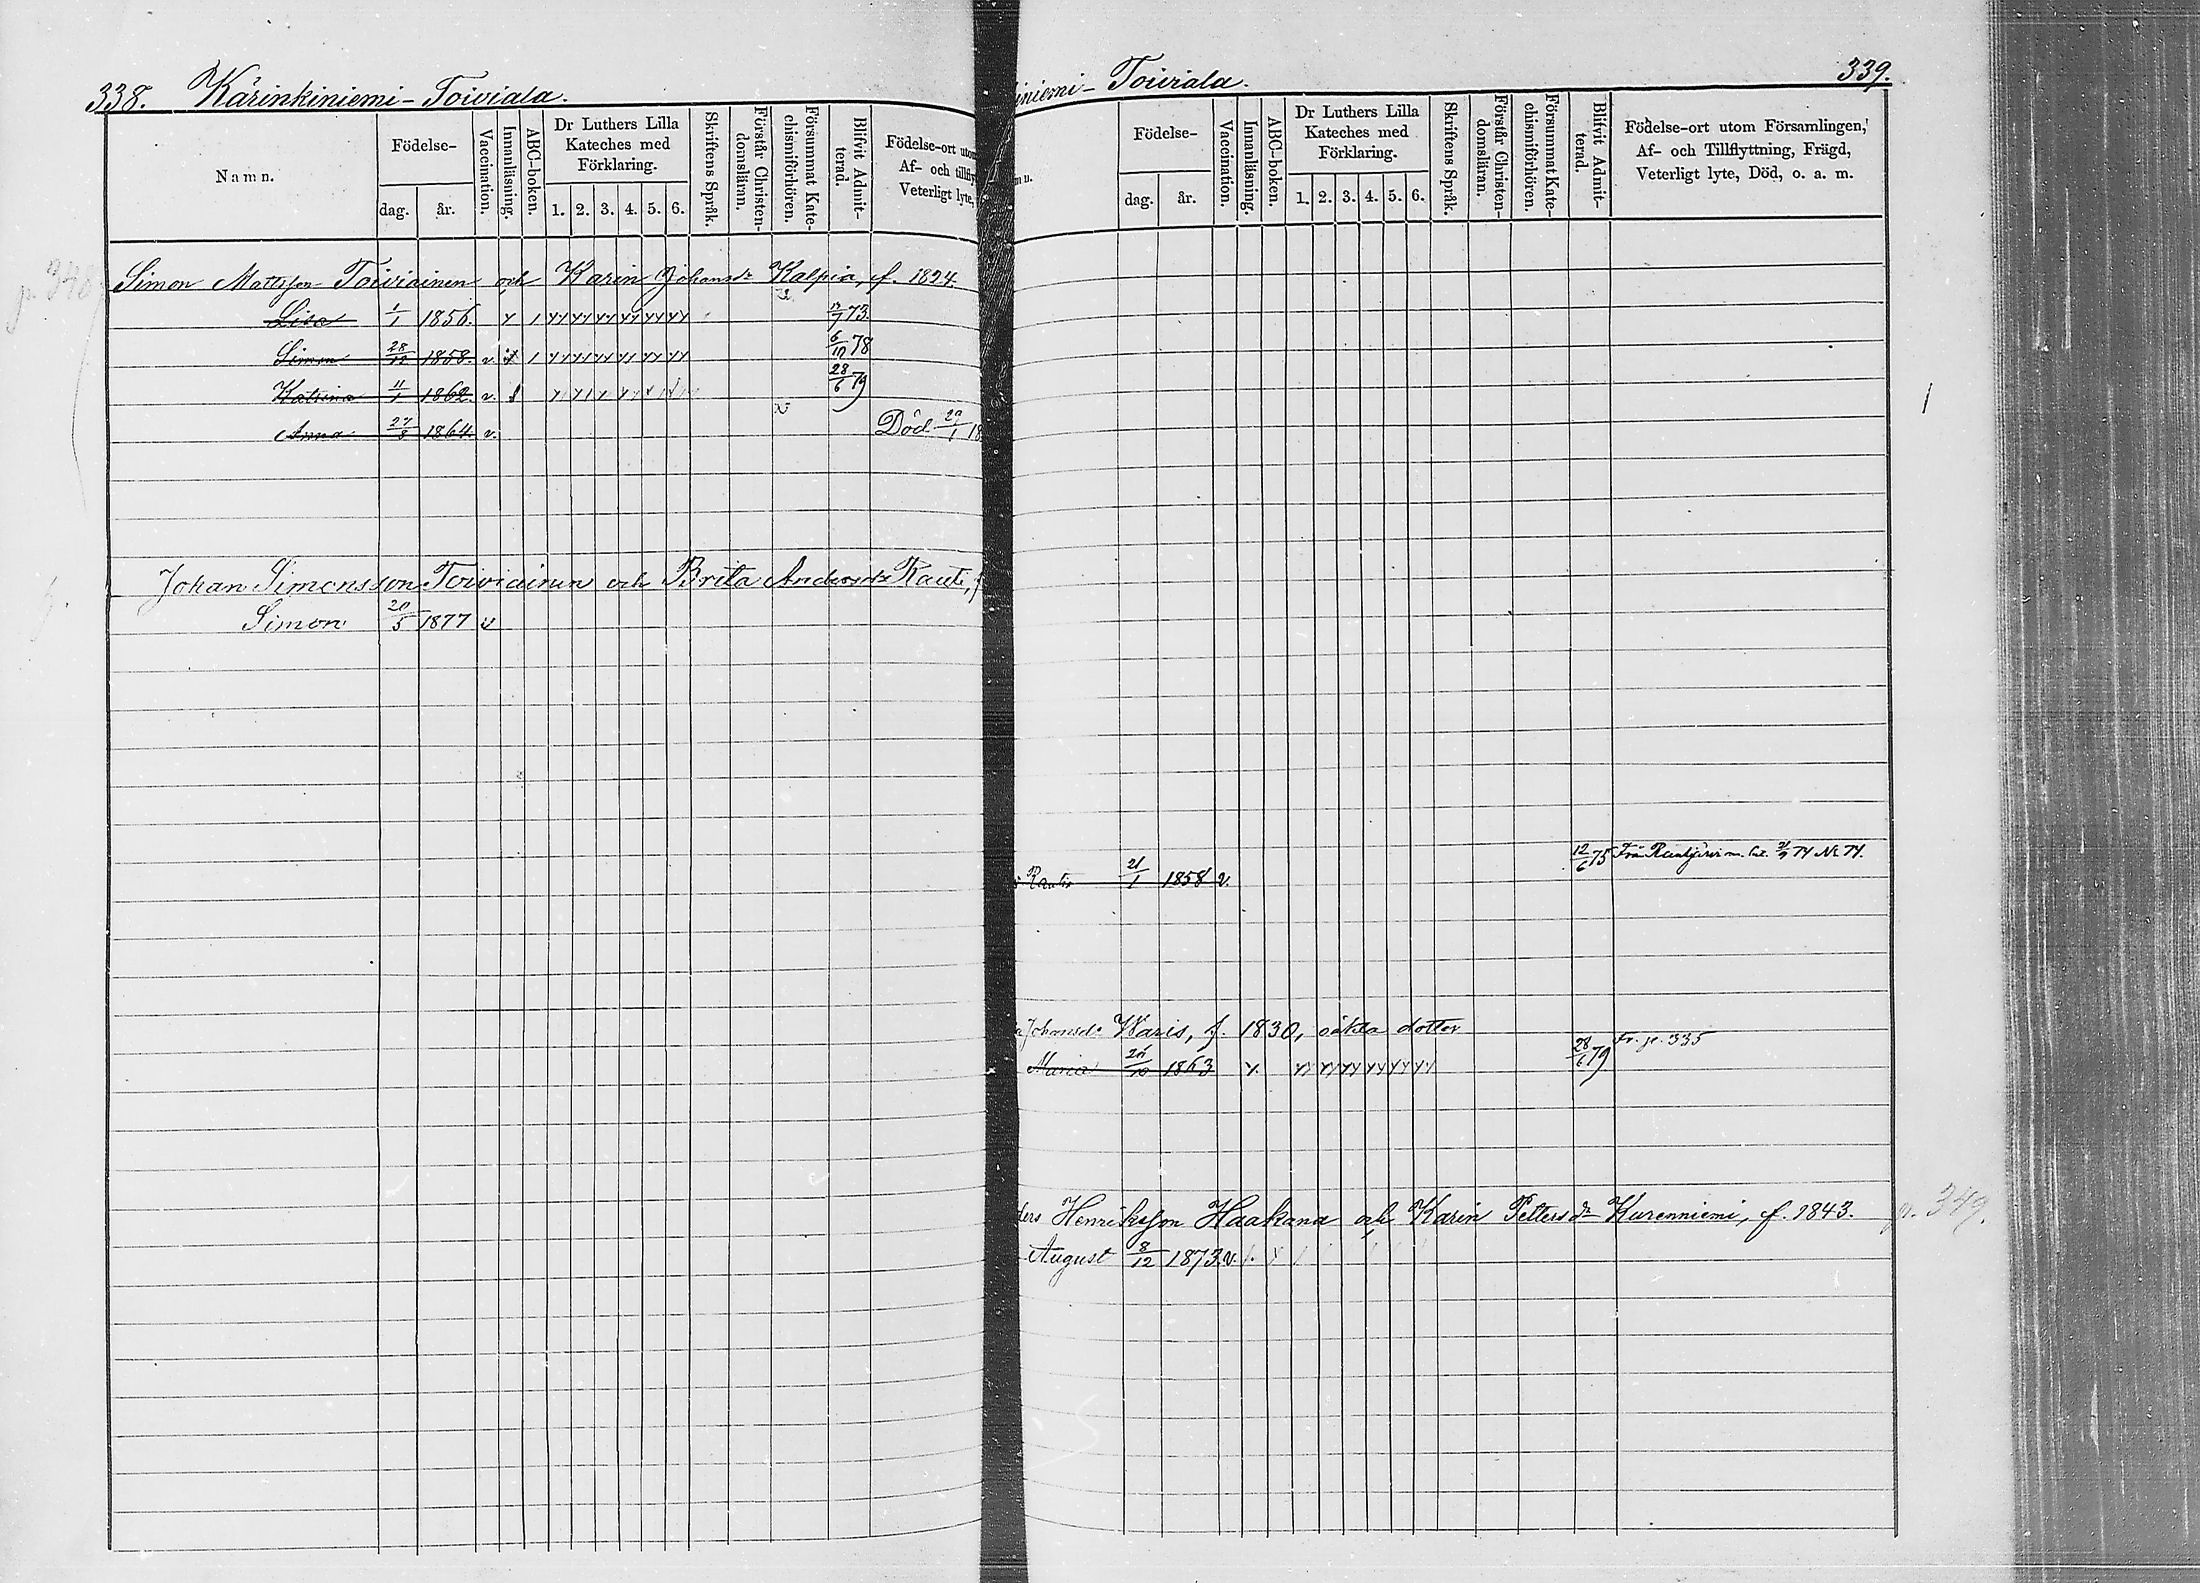 338. Kärinkiniemi - Toiviala.
Namn.
Födelse-
dag.
år.
Vaccination.
Innanläsning.
ABC-boken.
Dr Luthers Lilla
Kateches med
Förklaring.
1. 2. 3. 4. 5. 6.
Skriftens Språk.
Förstår Christen-
domsläran.
Försummat Kate-
chismiförhören.
Blifvit Admit-
terad.
Födelse-ort utom
Af- och tillfly
Veterligt lyte,
Simon Mattsson Toiviainen och Karin Johansdr Kalpia, f. 1824.
Lisa 1/1 1856. 73.
Simon 28/12 1858. v. 6/10 78
Katrina 11/1 1862 v. 28/6 79
Anna 27/8 1864. v. Död 29/1 18
Johan Simonsson Toiviainen och Brita Andersdr Rauti, f
Simon 20/5 1877 v
iniemi - Toiviala.
339.
Födelse-
dag.
år.
Vaccination.
Innanläsning.
ABC-boken.
Dr Luthers Lilla
Kateches med
Förklaring.
1. 2. 3. 4. 5. 6.
Skriftens Språk.
Förstår Christen-
domsläran.
Försummat Kate-
chismiförhören.
Blifvit Admit-
terad.
Födelse-ort utom Församlingen,
Af- och Tillflyttning, Frägd,
Veterligt lyte, Död, o. a. m.
12/6 75 Från 74 No 74.
21/1 1858 v.
Johansdr Waris, f. 1830, oäkta dotter
Maria 1863 28/6 79 Fr. p. 335
ders Henriksson Haakana och Karin Pettersdr Kurenniemi, f. 1843. p. 349.
August 8/12 1873. v.